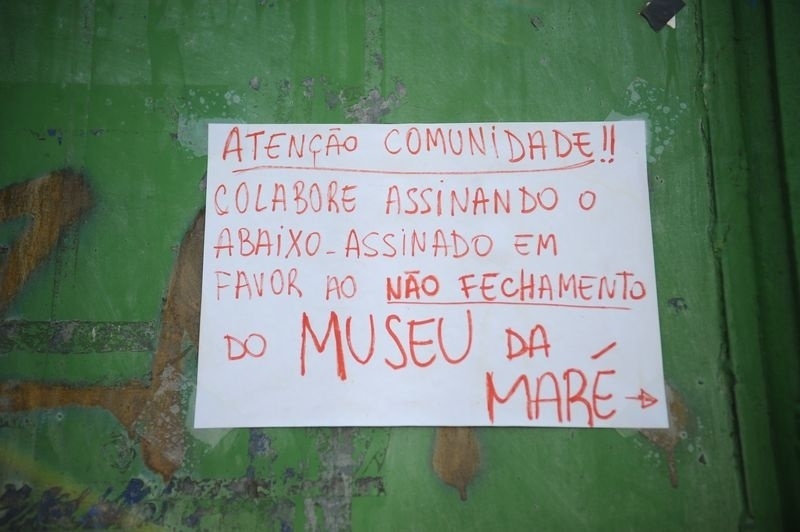 ATENÇÃO COMUNIDADE!!
COLABORE ASSINANDO O
ABAIXO-ASSINADO EM
FAVOR AO NÃO FECHAMENTO
DO MUSEU DA
MARÉ →